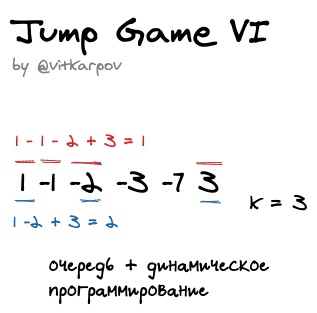 Jump Game VI
by @vitkarpov
1 - 1 - 2 + 3 = 1
1 -1 -2 -3 -7 3
K = 3
1 - 2 + 3 = 2
очередь + динамическое
программирование